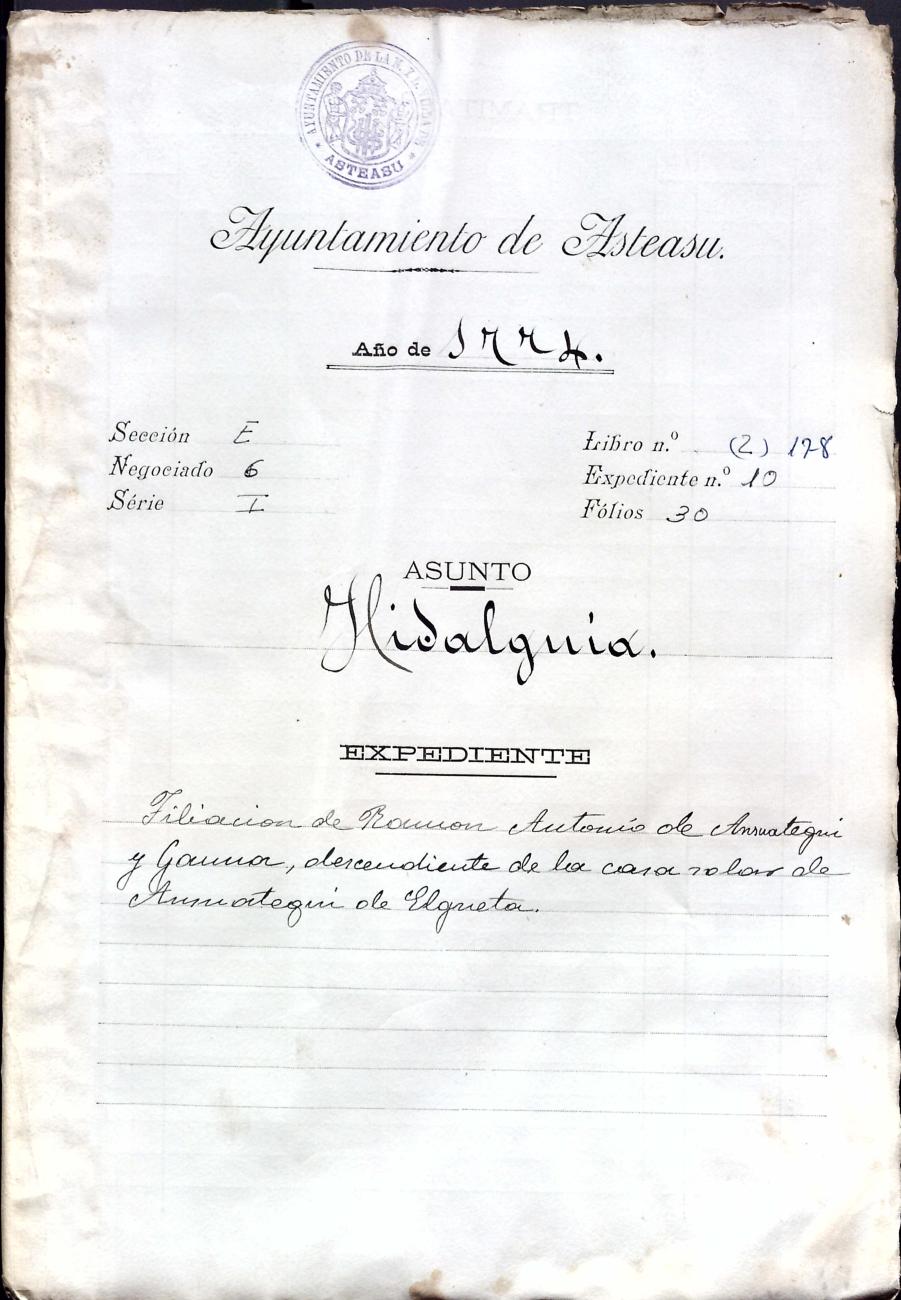 AYUNTAMIENTO DE LA N. Y L. VILLA DE
ASTEASU
Ayuntamiento de Asteasu.
Año de 1774.
Sección E
Negociado 6
Série I
Libro n.º (2) 178
Expediente n.º 10
Fólios 30
ASUNTO
Hidalguia.
EXPEDIENTE
Filiacion de Ramon Antonio de Ansuategui
y Gauna, descendiente de la casa solar de
Ansuategui de Elgueta.